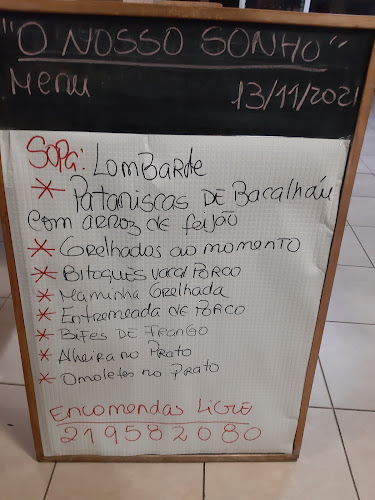 "O NOSSO SONHO"
Menu 13/11/2021
SOPA: LOMBARDE
* PATANISCAS DE BACALHAU
COM ARROZ DE FEIJÃO
* GRELHADOS AO MOMENTO
* BITOQUES VACA/PORCO
* MAMINHA GRELHADA
* ENTREMEADA DE PORCO
* BIFES DE FRANGO
* Alheira no Prato
* Omoletes no Prato
Encomendas LIGUE
219582080